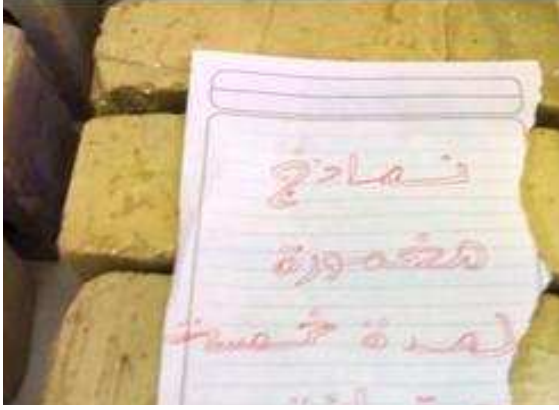 نماذج
مغمورة
لمدة خمسة